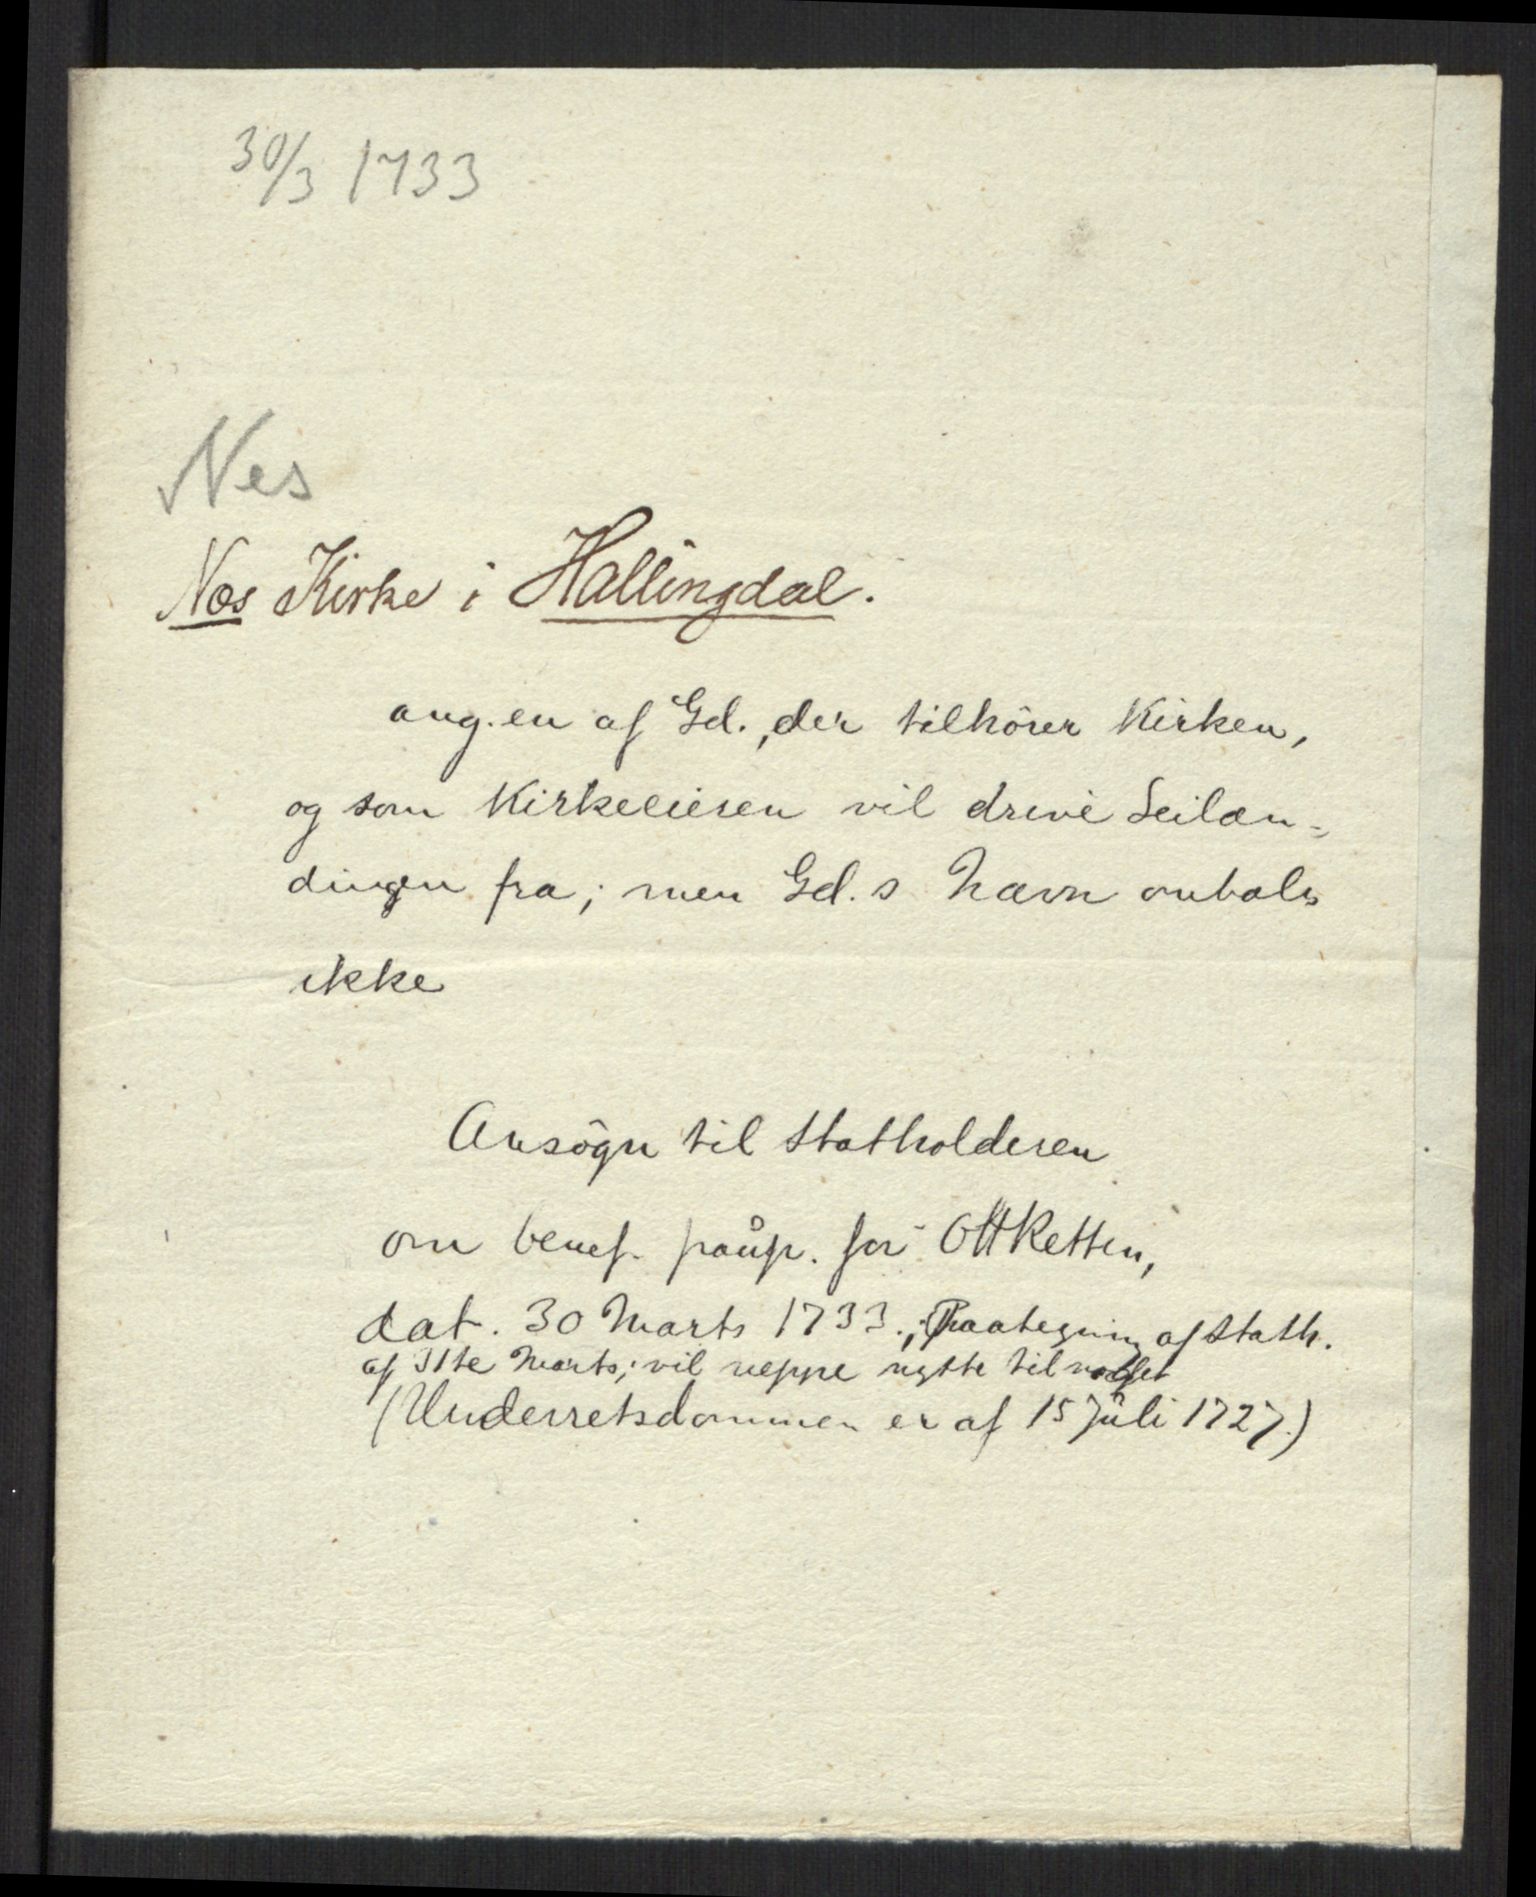 30/3 1733
Nes
Næs Kirke i Hallingdal.
ang. en af Gd., der tilhörer Kirken,
og som Kirkeeieren vil drive Leilæn-
dingen fra; men Gd.s Navn omtales
ikke
Ansögn til Statholderen
om benef. paup. for OHRetten,
dat. 30 Marts 1733.; Paategning af Stath.
af 31te Marts; vil neppe nytte til noget
(Underretsdommen er af 15 Juli 1727.)